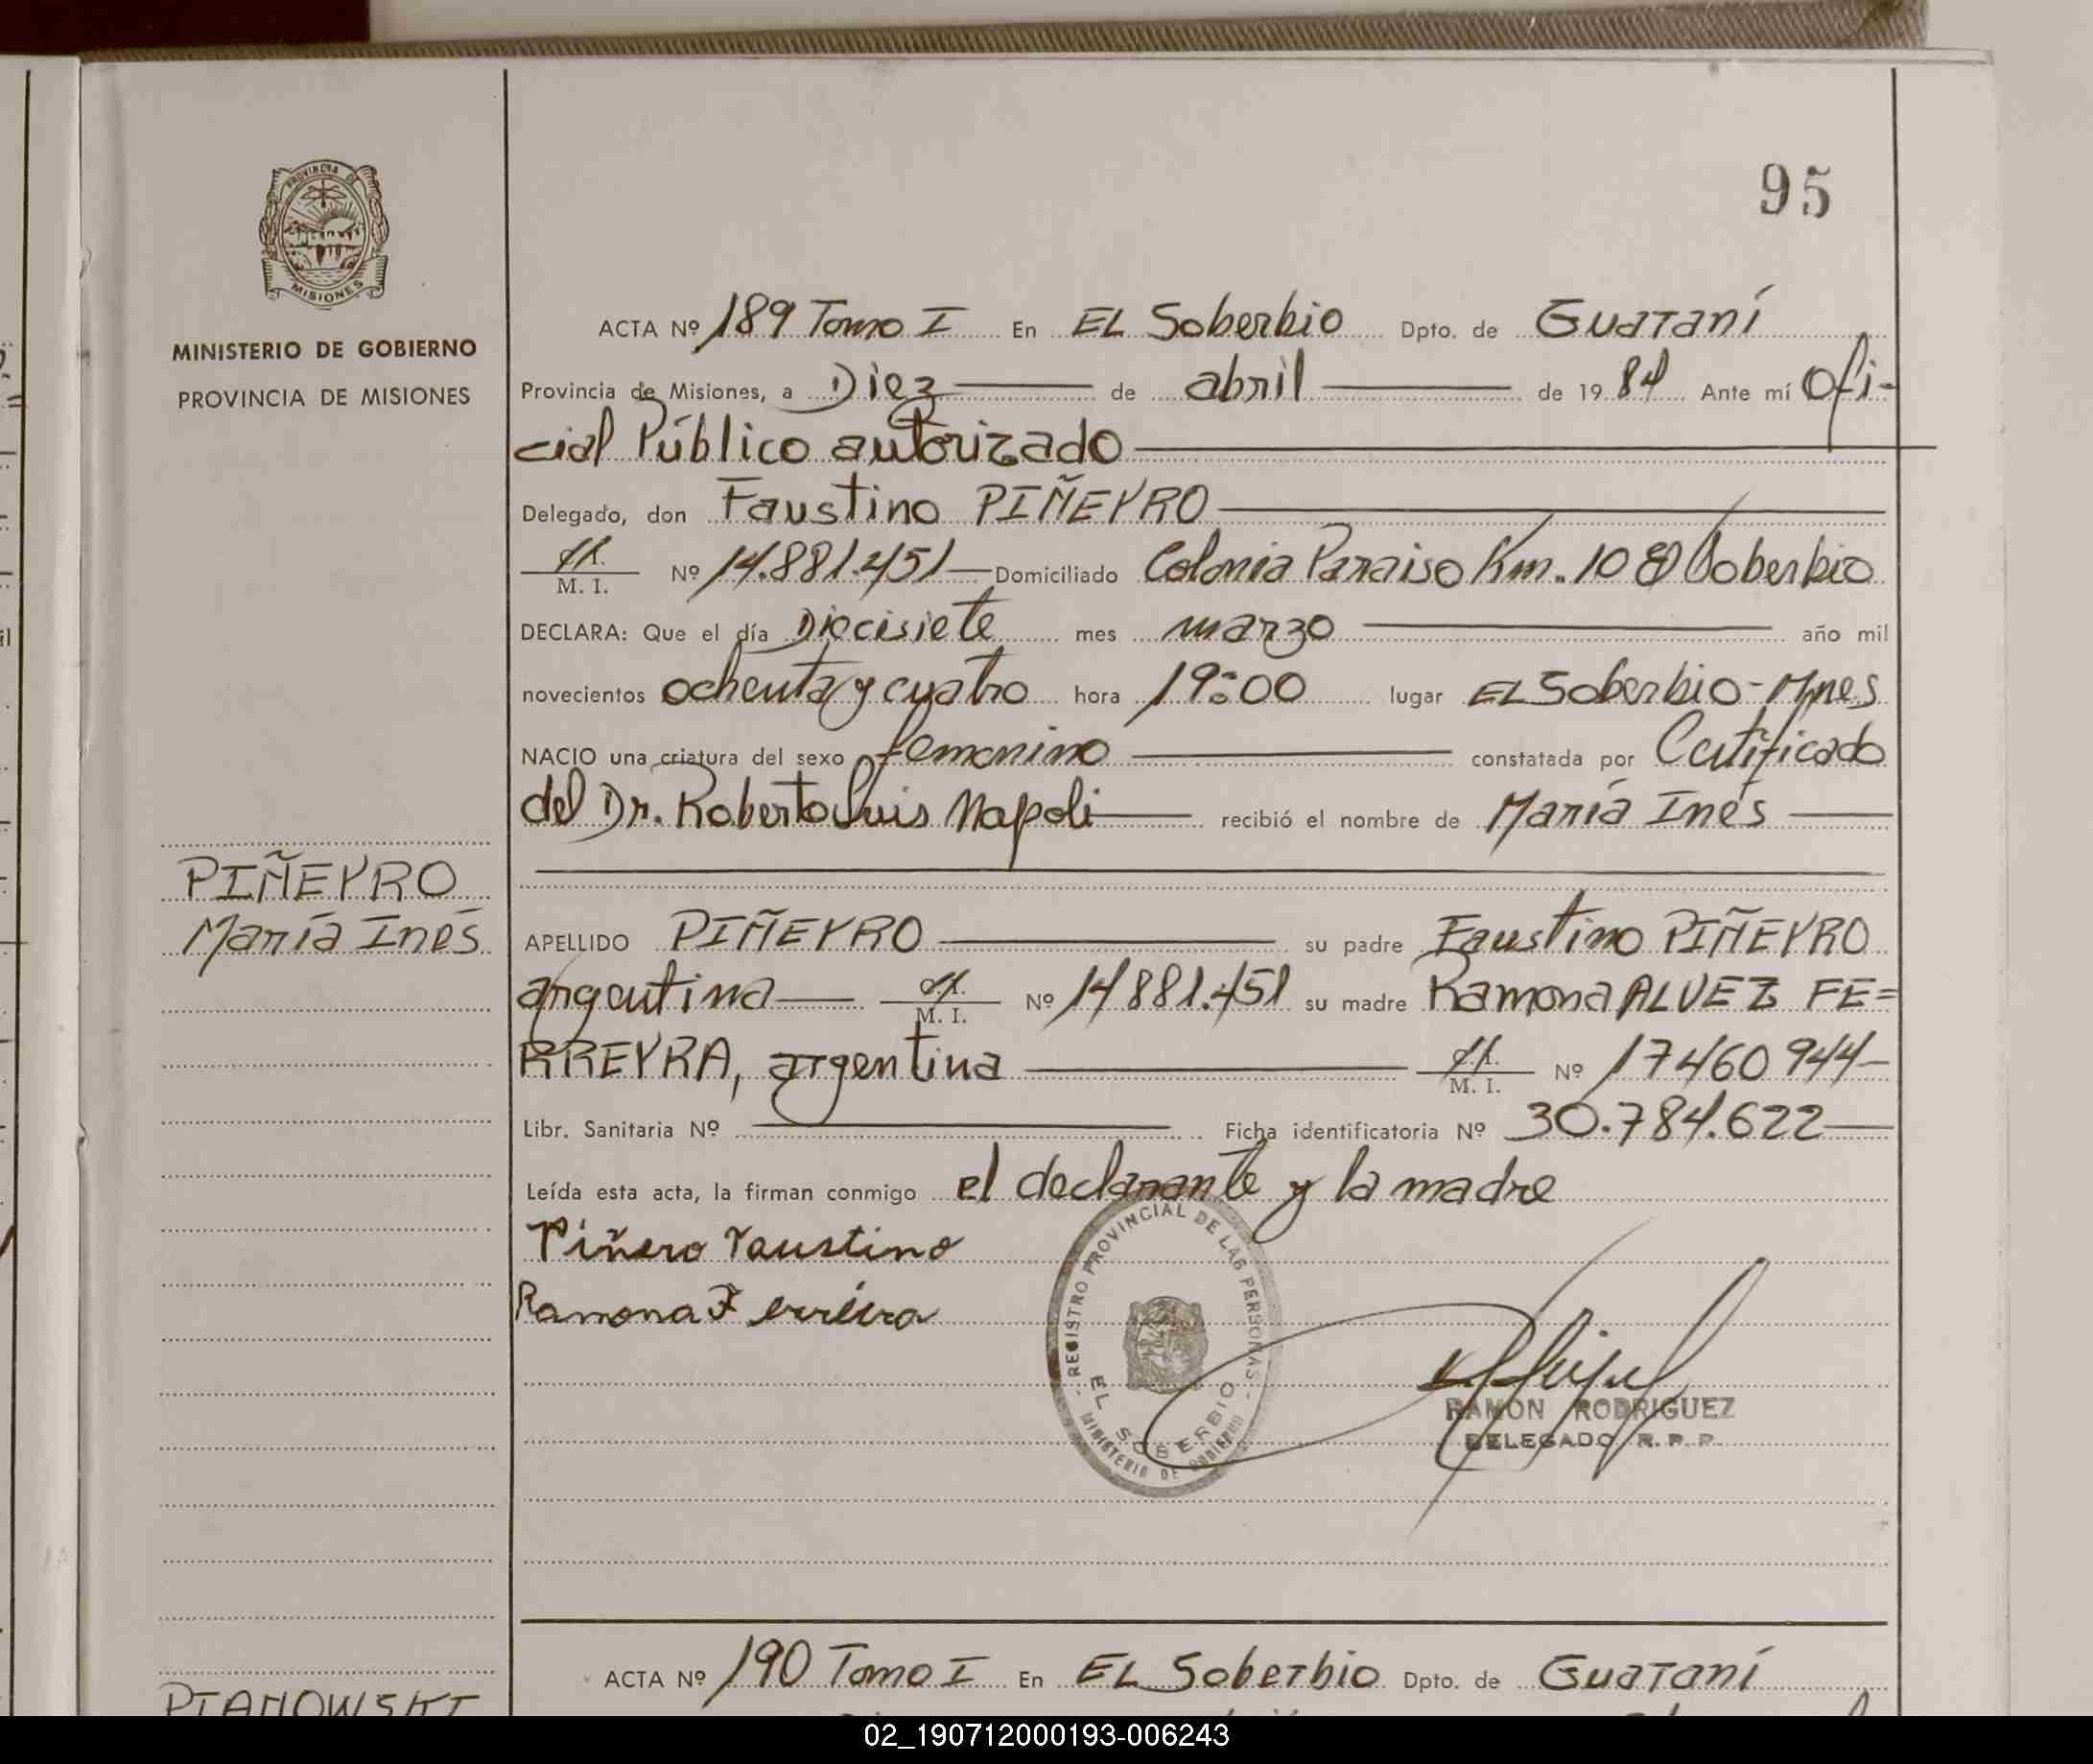 95
PROVINCIA DE
MISIONES
MINISTERIO DE GOBIERNO
PROVINCIA DE MISIONES
ACTA Nº 189 Tomo I En EL Soberbio Dpto. de Guaraní
Provincia de Misiones, a Diez de abril de 1984 Ante mí Ofi-
cial Público autorizado
Delegado, don Faustino PIÑEYRO
M. I. Nº 14.881.451 Domiciliado Colonia Paraiso Km. 10 El Soberbio
DECLARA: Que el día Diecisiete mes marzo año mil
novecientos ochenta y cuatro hora 19:00 lugar EL Soberbio-Mnes
NACIO una criatura del sexo femenino constatada por Certificado
del Dr. Roberto Luis Napoli recibió el nombre de María Inés
PIÑEYRO
María Inés
APELLIDO PIÑEYRO su padre Faustino PIÑEYRO
argentina M. I. Nº 14881.451 su madre Ramona ALVEZ FE=
RREYRA, argentina M. I. Nº 17460944
Libr. Sanitaria Nº Ficha identificatoria Nº 30.784.622
Leída esta acta, la firman conmigo el declarante y la madre
Piñero Faustino
Ramona Ferreira
REGISTRO PROVINCIAL DE LAS PERSONAS
EL SOBERBIO
MINISTERIO DE GOBIERNO
RAMON RODRIGUEZ
DELEGADO R. P. P.
ACTA Nº 190 Tomo I En EL Soberbio Dpto. de Guaraní
PIANOWSKI
02_190712000193-006243